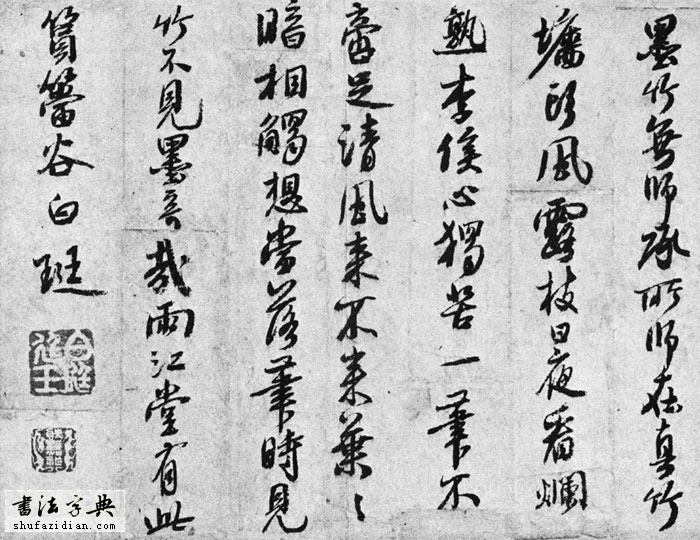 墨竹無師承所師在真竹
墻頭風露枝日夜看爛
熟李侯心獨苦一筆不
啻足清風来不来葉〻
暗相觸想當落筆時見
竹不見墨奇哉兩江堂有此
篔簹谷白珽
書法字典
shufazidian.com